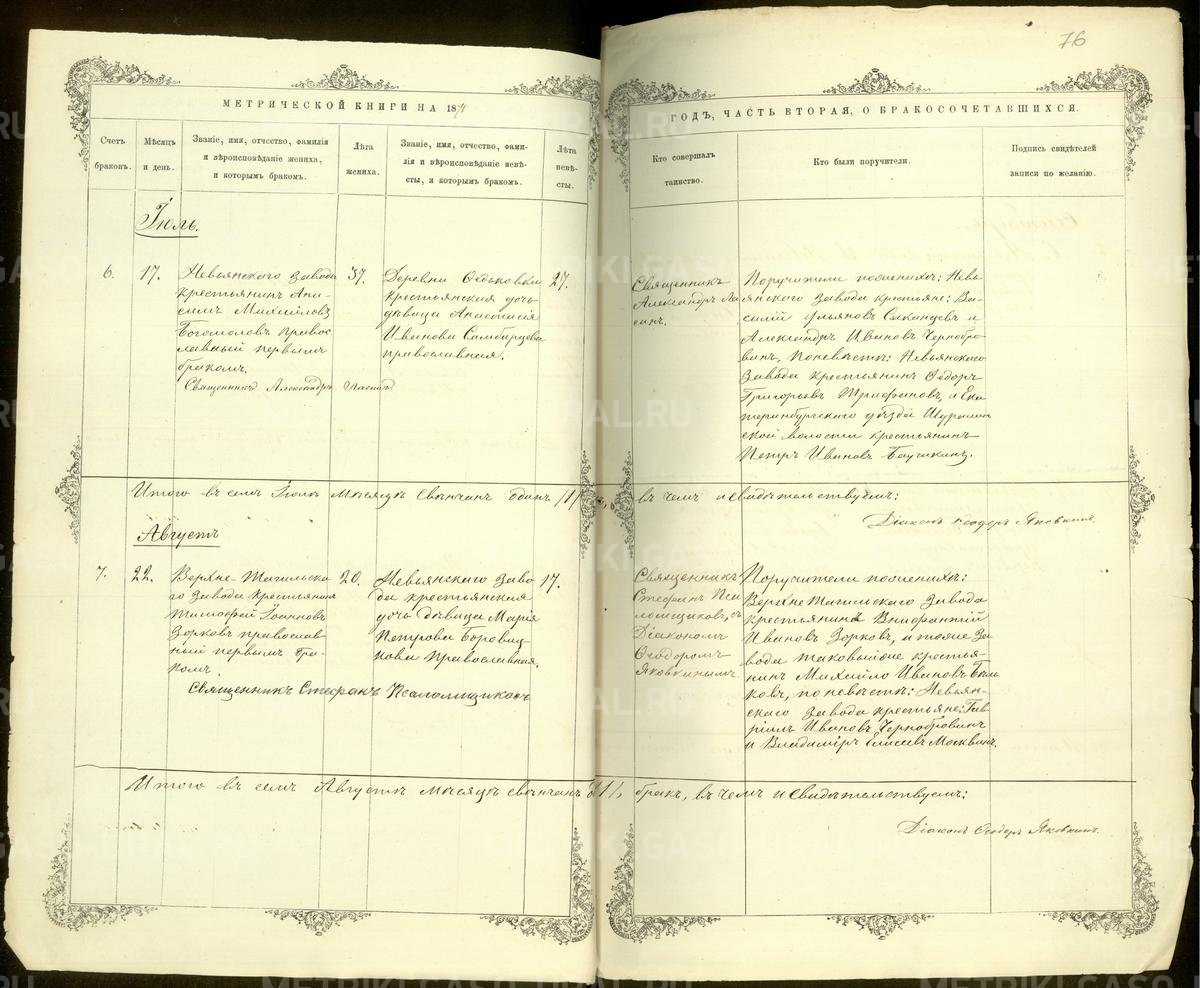 76
МЕТРИЧЕСКОЙ КНИГИ НА 187
ГОДЪ, ЧАСТЬ ВТОРАЯ, О БРАКОСОЧЕТАВШИХСЯ.
Счетъ
браковъ.
Мѣсяцъ
и день.
Званіе, имя, отчество, фамилія
и вѣроисповѣданіе жениха,
и которымъ бракомъ.
Лѣта
жениха.
Званіе, имя, отчество, фами-
лія и вѣроисповѣданіе невѣ-
сты, и которымъ бракомъ.
Лѣта
невѣ-
сты.
Кто совершалъ
таинство.
Кто были поручители.
Подпись свидѣтелей
записи по желанію.
Іюль.
6.
17.
Невьянскаго завода
крестьянинъ Ани-
симъ Михайловъ
Богомоловъ правос
лавный первымъ
бракомъ.
37.
Деревни Ѳедьковки
крестьянская дочь
дѣвица Анастасія
Иванова
православная.
27.
Священникъ Александръ
Священникъ
Александръ
Поручители по женихѣ: Невь
янскаго завода крестьяне: Ва-
силій Ульяновъ и
Александръ Ивановъ Чернобро-
винъ, по невѣстѣ: Невьянскаго
завода крестьянинъ Ѳедоръ
Григорьевъ Трифановъ, и Ека
теринбургскаго уѣзда Шуралин
ской волости крестьянинъ
Петръ Ивановъ
Итого въ семъ Іюлѣ мѣсяцѣ свѣнчанъ одинъ /1/
въ чемъ и свидѣтельствуемъ:
Діаконъ Ѳеодоръ Яковкинъ.
Августъ
7.
22.
Верхне-Тагильска
го завода крестьянинъ
Тимофей Іоанновъ
Зорковъ православ
ный первымъ бра-
комъ.
20.
Невьянскаго заво
да крестьянская
дочь дѣвица Марія
Петрова Боровиц-
кова православная.
17.
Священникъ Стефанъ Псаломщиковъ
Священникъ
Стефанъ Пса
ломщиковъ, съ
Діакономъ
Ѳеодоромъ
Яковкинымъ.
Поручители по женихѣ:
Верхнетагильскаго завода
крестьянинъ Внифантій
Ивановъ Зорковъ, и тоже за
вода таковый же крестья-
нинъ Михайло Ивановъ Бы
ковъ, по невѣстѣ: Невьян-
скаго завода крестьяне: Гав
ріилъ Ивановъ Чернобровинъ
и Владиміръ Елисеевъ Москвинъ.
Итого въ семъ Августѣ мѣсяцѣ свѣнчанъ /1/,
бракъ, въ чемъ и свидѣтельствуемъ:
Діаконъ Ѳеодоръ Яковкинъ.
METRIKI.GASO-URAL.RU